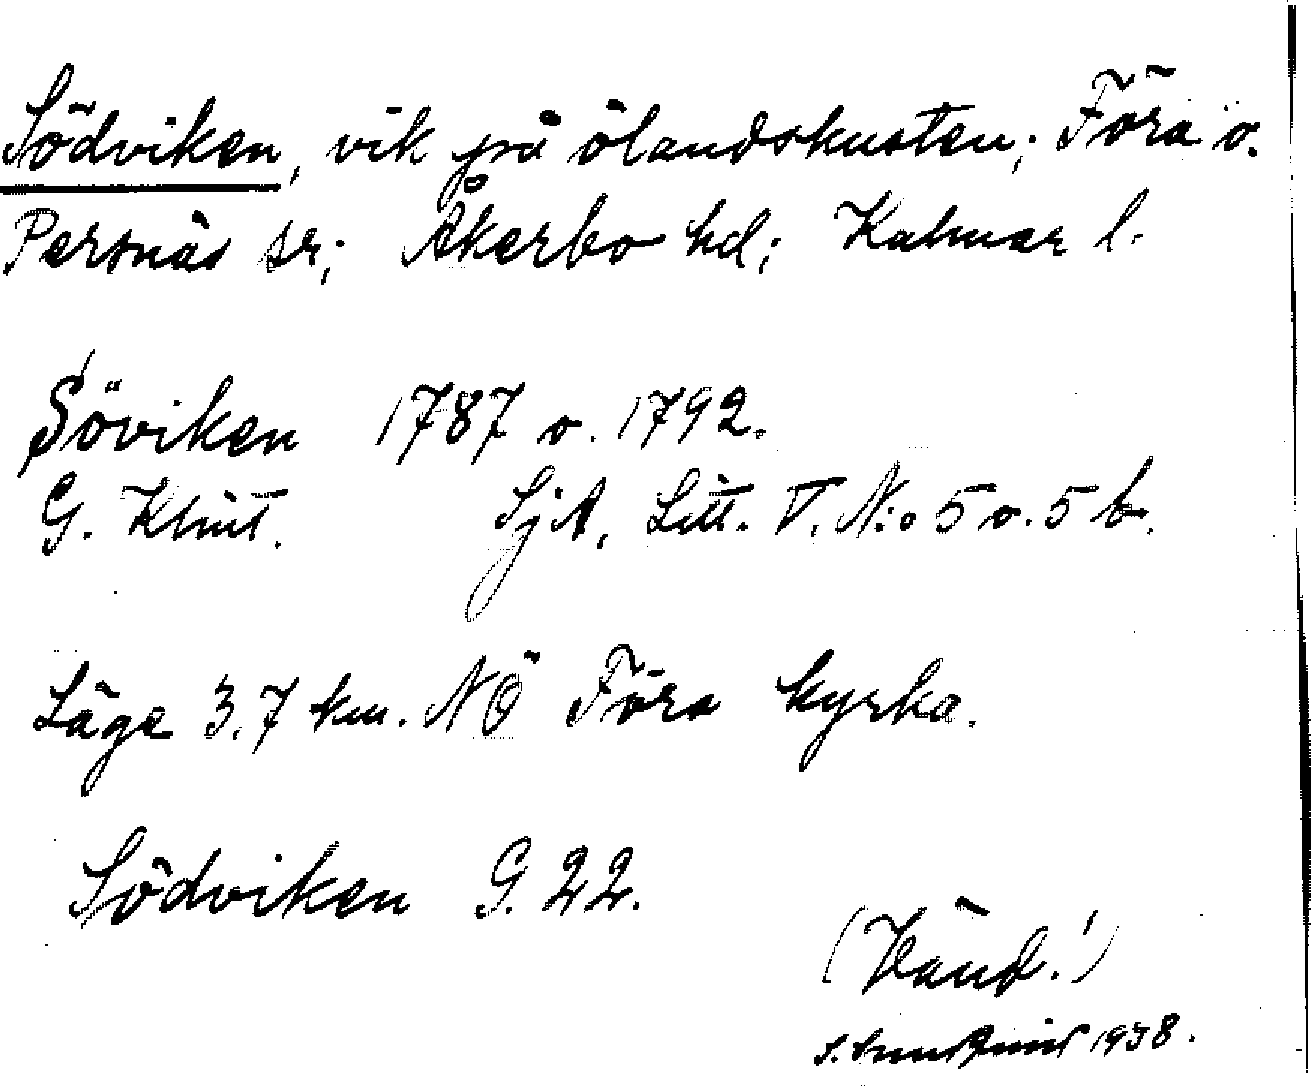 Södviken, vik på ölandskusten; Föra o.
Persnäs sr; Åkerbo hd; Kalmar l.
Söviken 1787 o. 1792.
G. Klint. SjA, Litt. V. N:o 5 o. 5 b.
Läge 3,7 km. NÖ Föra kyrka.
Södviken G. 22.
(Vänd!)
S. 1938.